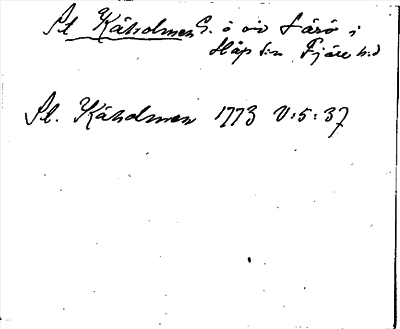 St Kåholmen S. ö vid Särö i
Släp sn Fjäre hd
St. Kåholmen 1773 V:5:37